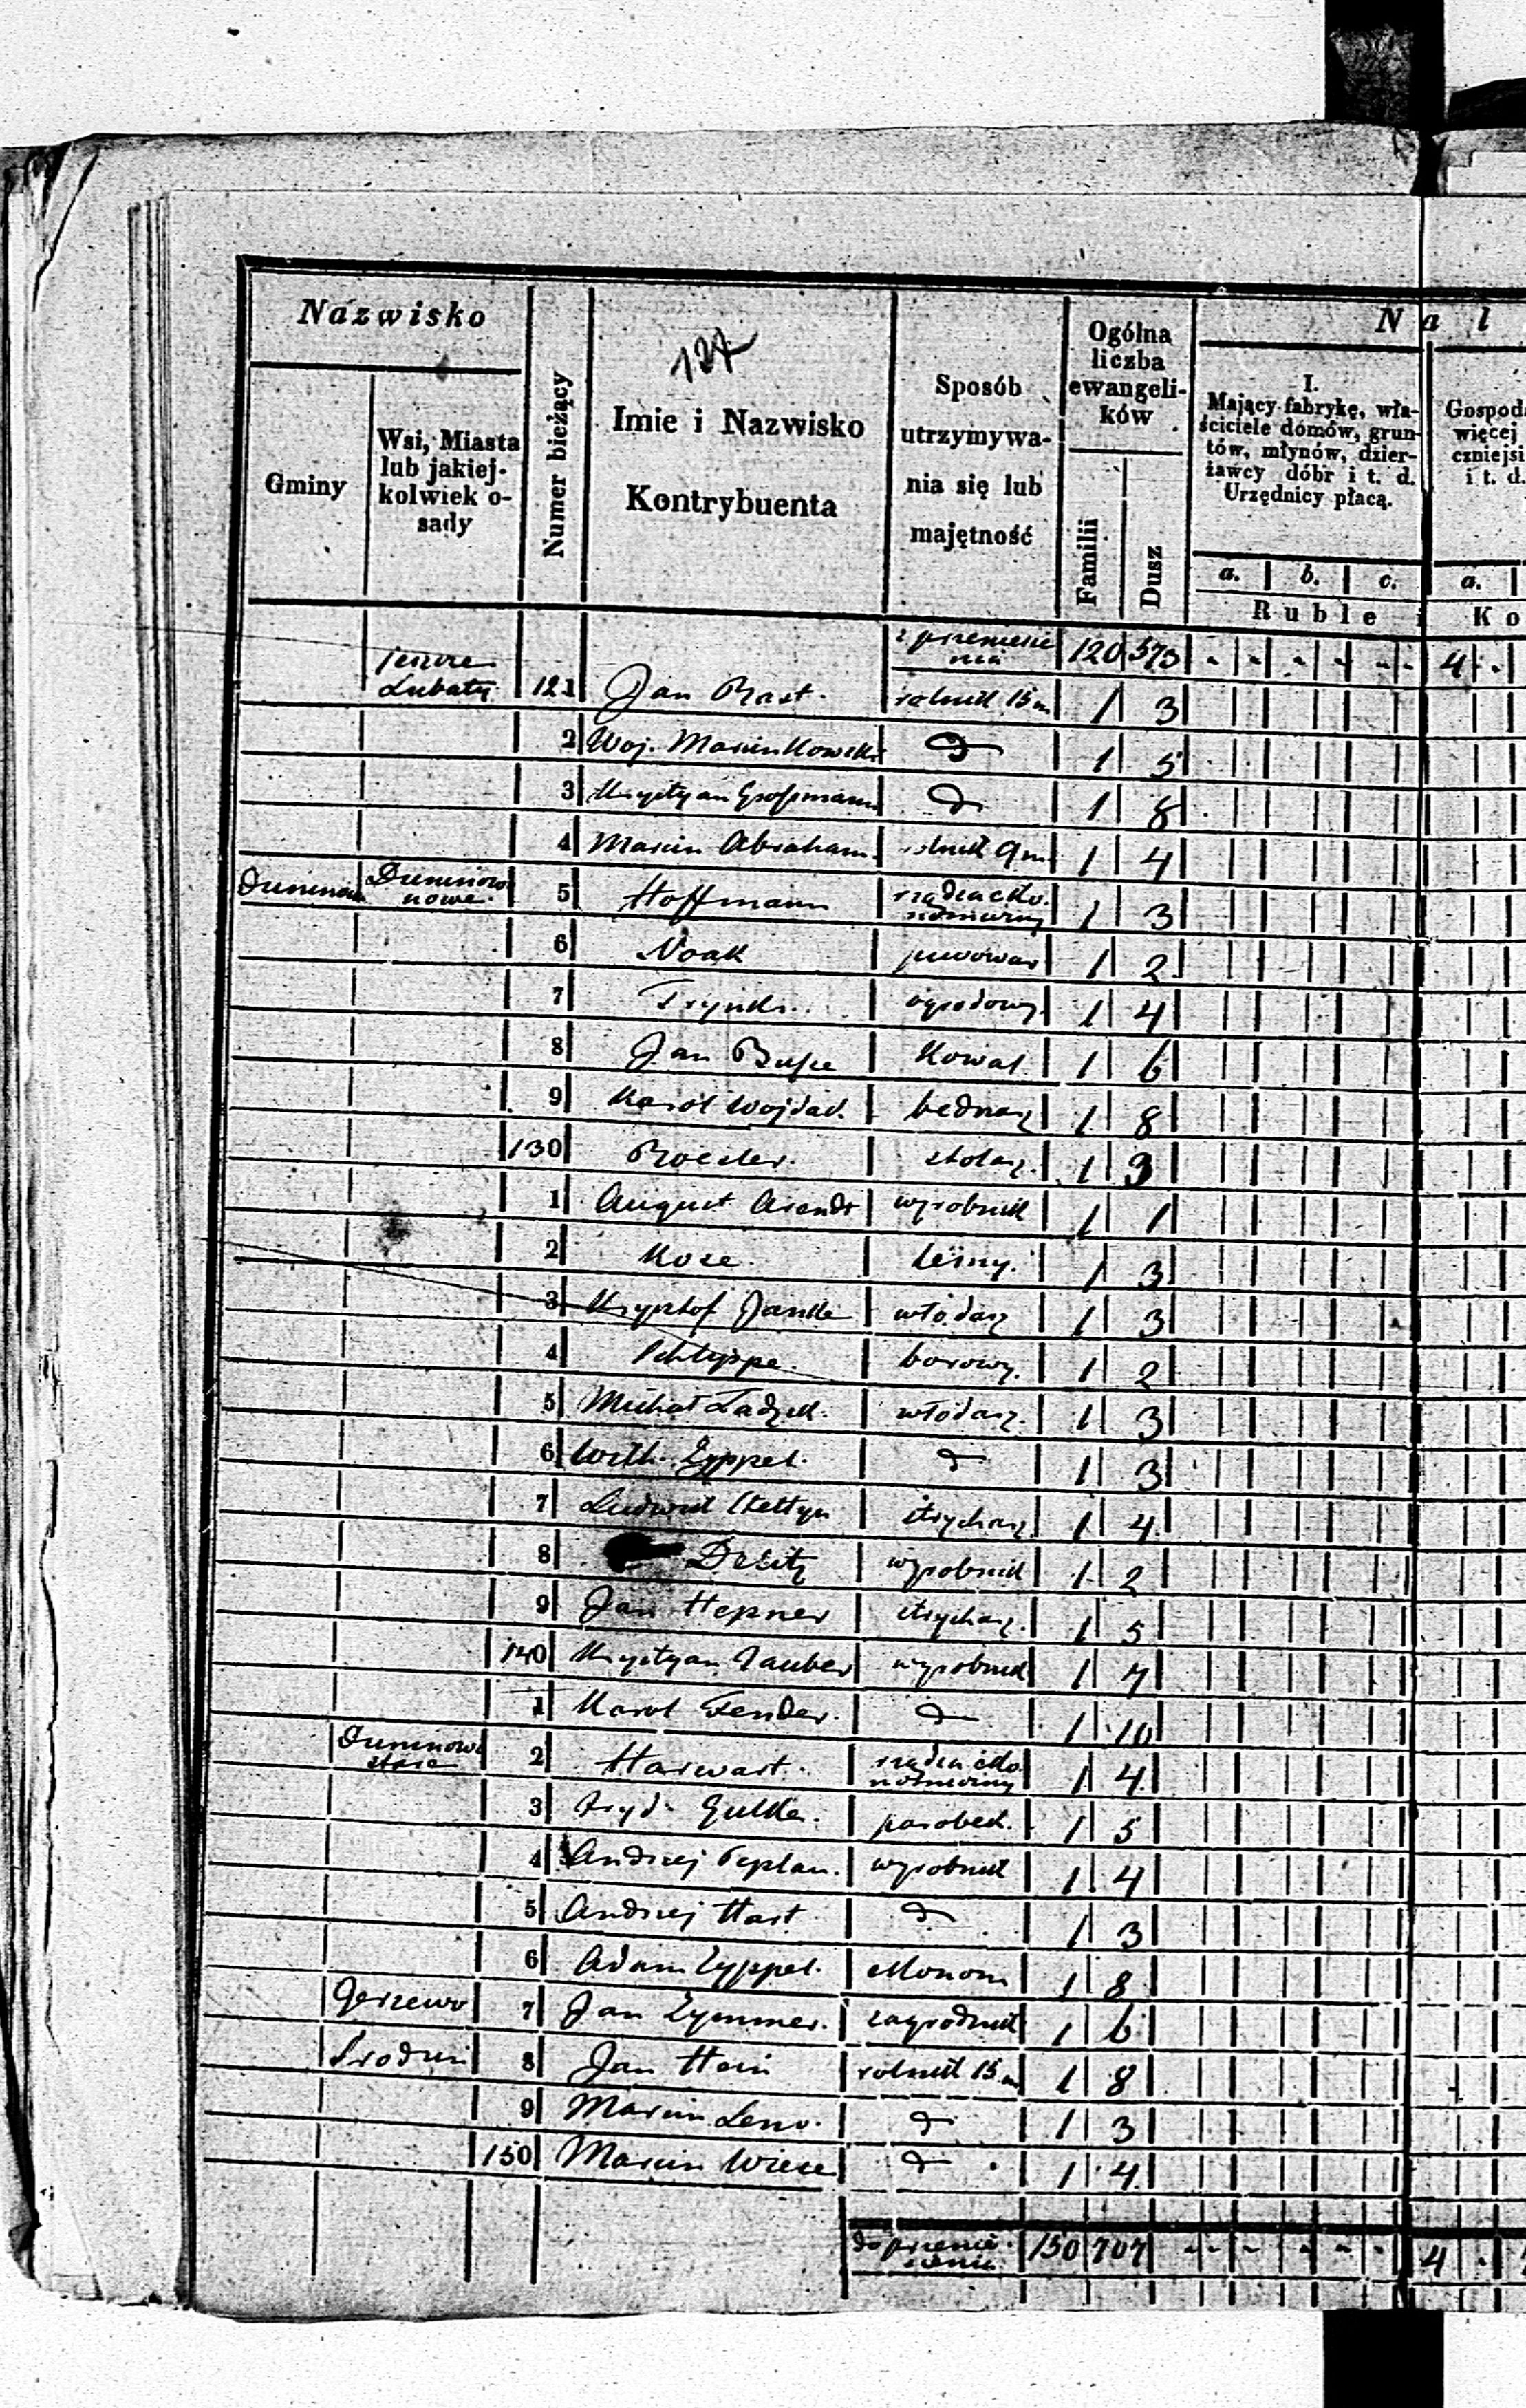 Nazwisko
Gminy
Wsi, Miasta
lub jakiej-
kolwiek o-
sady
Numer bieżący
127
Imie i Nazwisko
Kontrybuenta
Sposób
utrzymywa-
nia się lub
majętność
Ogólna
liczba
ewangeli-
ków
Familii
Dusz
N a l
I.
Mający fabrykę, wła-
ściciele domów, grun-
tów, młynów, dzier-
żawcy dóbr i t. d.
Urzędnicy płacą.
Gospod
więcej
czniejsi
i t. d.
a. b. c. a.
Ruble i Ko
z przeniesie
nia 120 573 4
Lubaty 121 Jan Rast. rolnik 15 m 1 3
2 Woj. Marcinkowski d 1 5
3 Krystyan Großmann d 1 8
4 Marcin Abraham rolnik 9 m 1 4
Duninów Duninów
nowe 5 Hoffmann rządca eko.
nomiczny 1 3
6 Noak piwowar 1 2
7 ogrodowy 1 4
8 Jan Buße Kowal 1 6
9 Karol Wojdad. bednarz 1 8
130 Roesler. stolarz. 1 3
1 August Arendt wyrobnik 1 1
2 Koze. leśny. 1 3
3 Krysztof Janke włodarz 1 3
4 borowy. 1 2
5 Michał Ladzik. włodarz. 1 3
6 Wilh. Zyppel. d 1 3
7 Ludwik Stettyn strycharz 1 4
8 Delitz wyrobnik 1 2
9 Jan Hepner strycharz. 1 5
140 Krystyan Tauber wyrobnik 1 7
1 Karol Fender. d 1 10
Duninów
stare 2 Harwart. rządca eko.
nomiczny 1 4
3 Fryd. Gulke. parobek. 1 5
4 Andrzej Peplau. wyrobnik 1 4
5 Andrzej Hart d 1 3
6 Adam Zyppel. ekonom 1 8
Gorzewo 7 Jan Zymmer. zagrodnik 1 6
Środuń 8 Jan Hein rolnik 15 m 1 8
9 Marcin Lenv. d 1 3
150 Marcin Wiese d 1 4
do przenie-
sienia 150 707 4